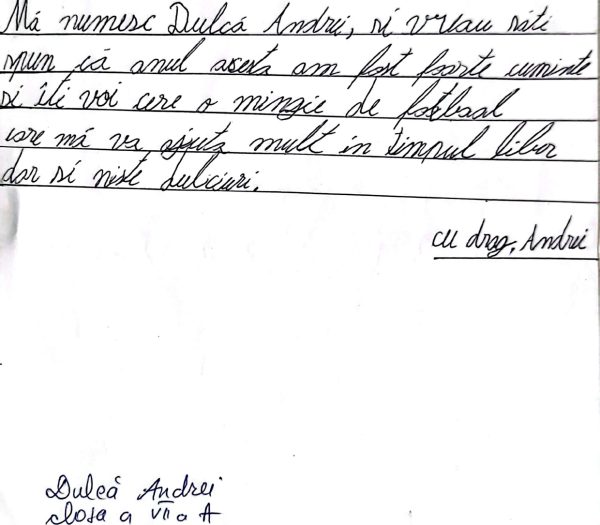 Mă numesc Dulcă Andrei, si vreau săti
spun că anul acesta am fost foarte cuminte
si îti voi cere o mingie de fotbaal
care mă va ajuta mult in timpul liber
dar si niste dulciuri.
cu drag, Andrei
Dulcă Andrei
clasa a VII a A